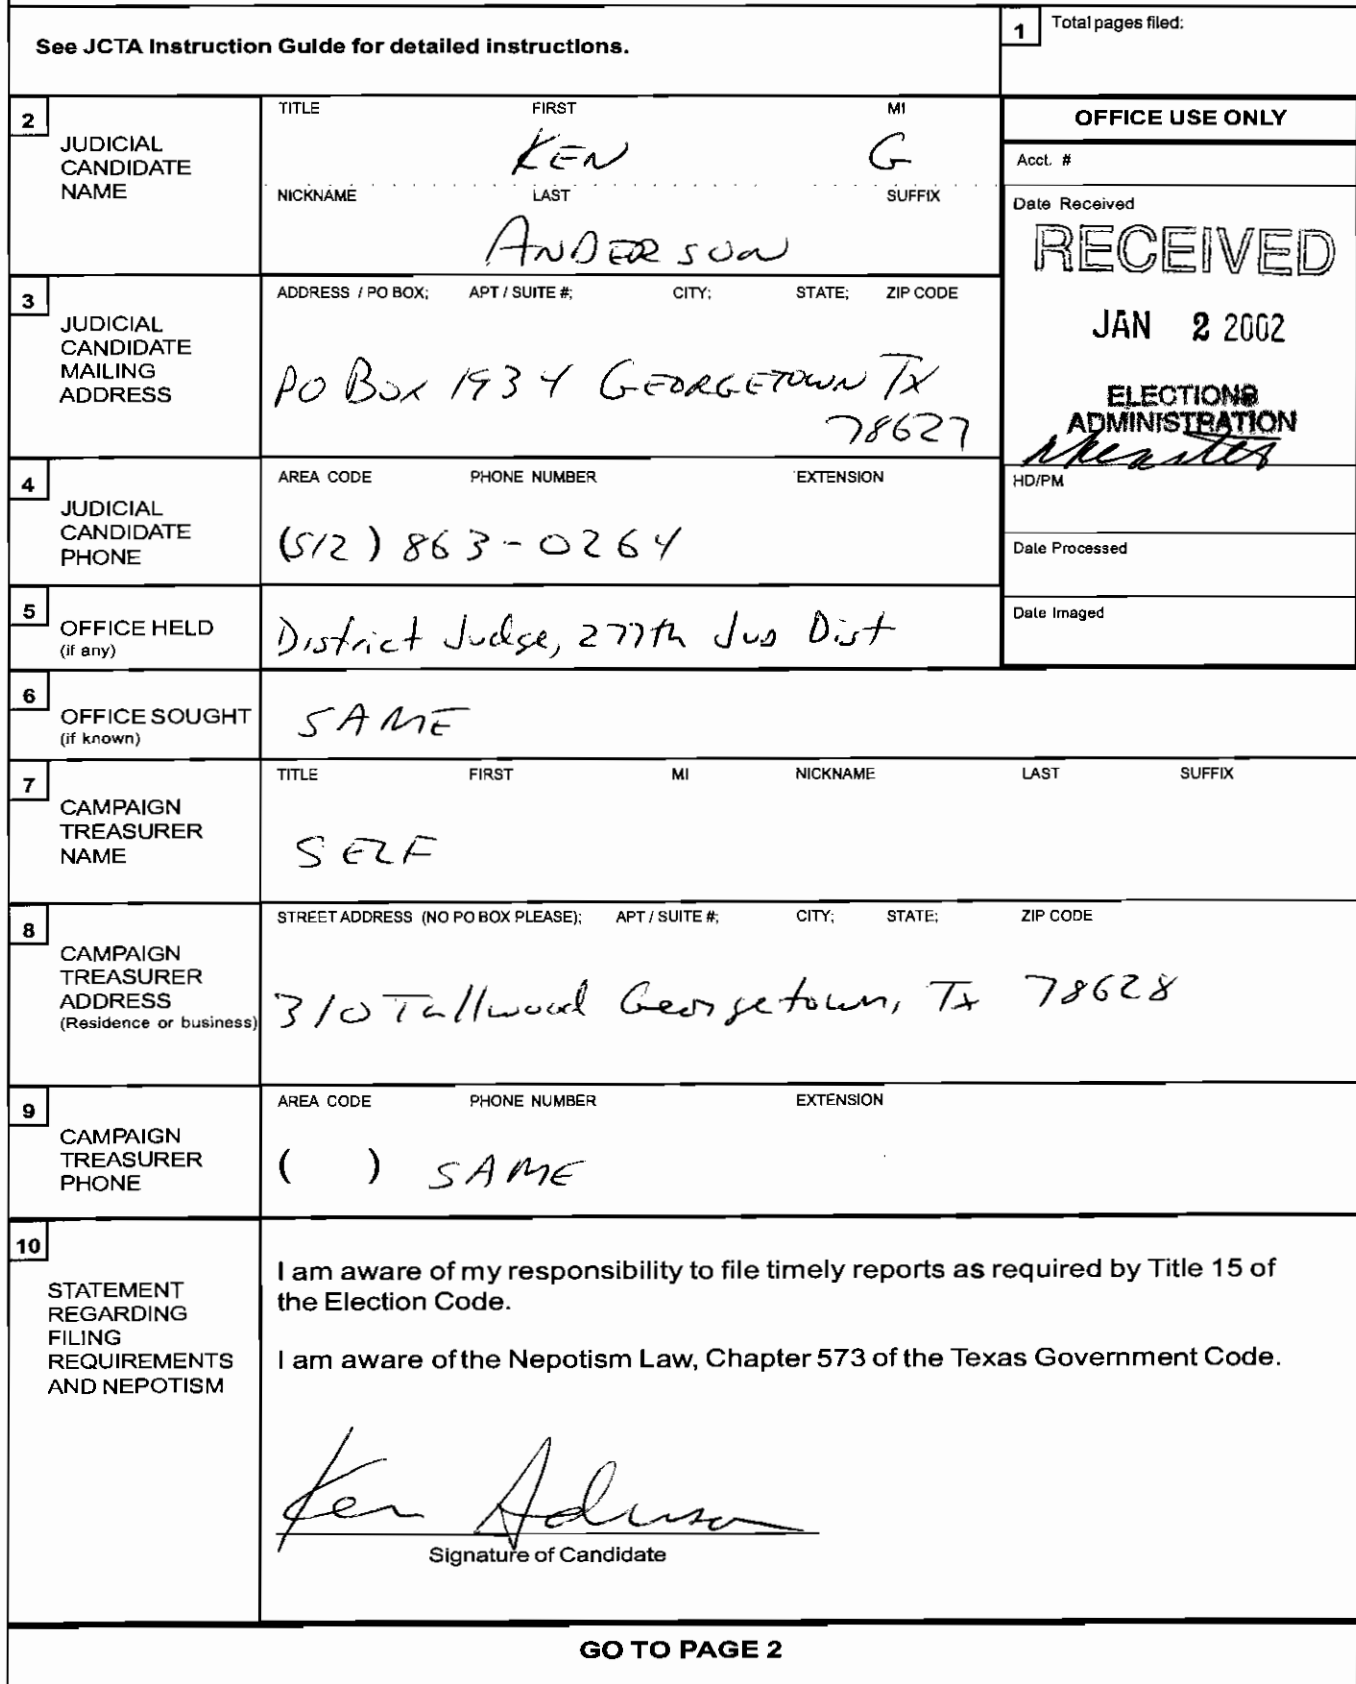 See JCTA Instruction Guide for detailed instructions.
1 Total pages filed:
2 JUDICIAL CANDIDATE NAME
TITLE FIRST MI
KEN G
NICKNAME LAST SUFFIX
ANDERSON
OFFICE USE ONLY
Acct. #
Date Received
RECEIVED
JAN 2 2002
ELECTIONS
ADMINISTRATION
HD/PM
Date Processed
Date Imaged
3 JUDICIAL CANDIDATE MAILING ADDRESS
ADDRESS / PO BOX; APT / SUITE #; CITY; STATE; ZIP CODE
PO Box 1934 GEORGETOWN TX
78627
4 JUDICIAL CANDIDATE PHONE
AREA CODE PHONE NUMBER EXTENSION
(512) 863-0264
5 OFFICE HELD
(if any)
District Judge, 277th Jud Dist
6 OFFICE SOUGHT
(if known)
SAME
7 CAMPAIGN TREASURER NAME
TITLE FIRST MI NICKNAME LAST SUFFIX
SELF
8 CAMPAIGN TREASURER ADDRESS
(Residence or business)
STREET ADDRESS (NO PO BOX PLEASE); APT / SUITE #; CITY; STATE; ZIP CODE
310 Tallwood Georgetown, Tx 78628
9 CAMPAIGN TREASURER PHONE
AREA CODE PHONE NUMBER EXTENSION
( ) SAME
10 STATEMENT REGARDING FILING REQUIREMENTS AND NEPOTISM
I am aware of my responsibility to file timely reports as required by Title 15 of
the Election Code.
I am aware of the Nepotism Law, Chapter 573 of the Texas Government Code.
Ken Anderson
Signature of Candidate
GO TO PAGE 2